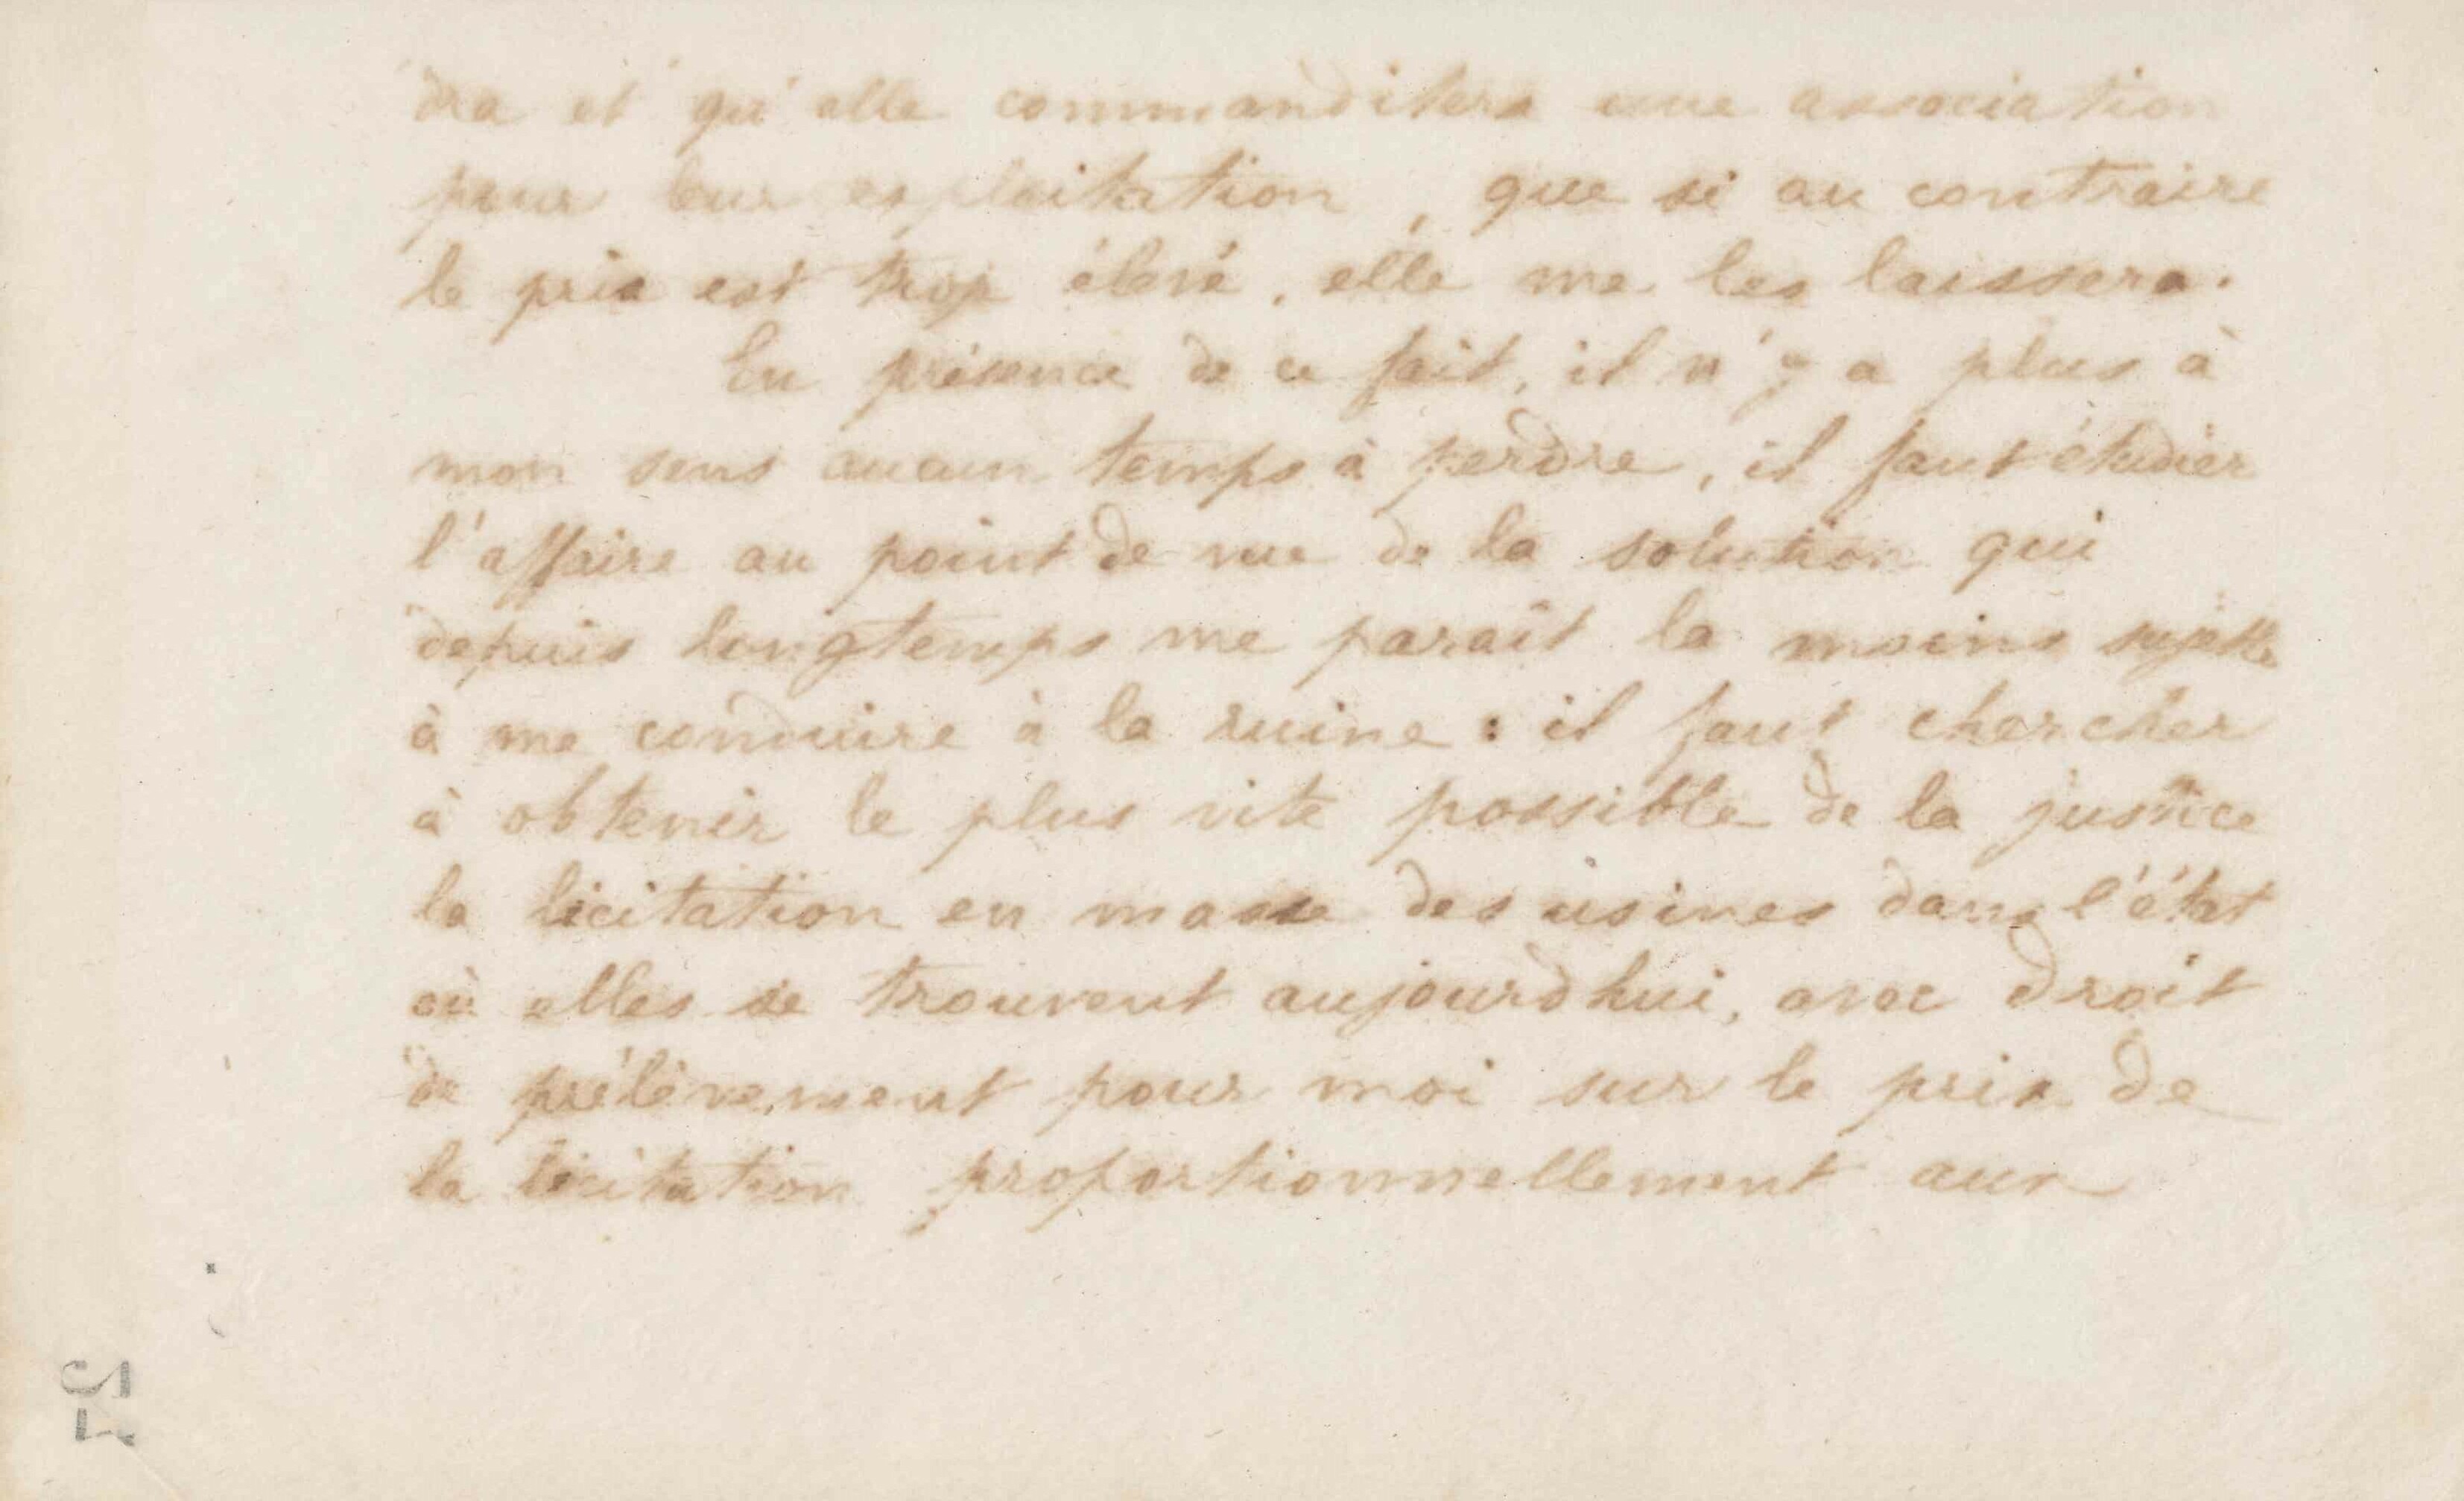 dra et qu'elle commanditera une association
pour leur exploitation, que si au contraire
le prix est trop élevé, elle me les laissera.
En présence de ce fait, il n'y a plus à
mon sens aucun temps à perdre, il faut étudier
l'affaire au point de vue de la solution qui
depuis longtemps me paraît la moins sujette
à me conduire à la ruine : il faut chercher
à obtenir le plus vite possible de la justice
la licitation en masse des usines dans l'état
où elles se trouvent aujourd'hui, avec droit
de prélèvement pour moi sur le prix de
la licitation proportionnellement aux